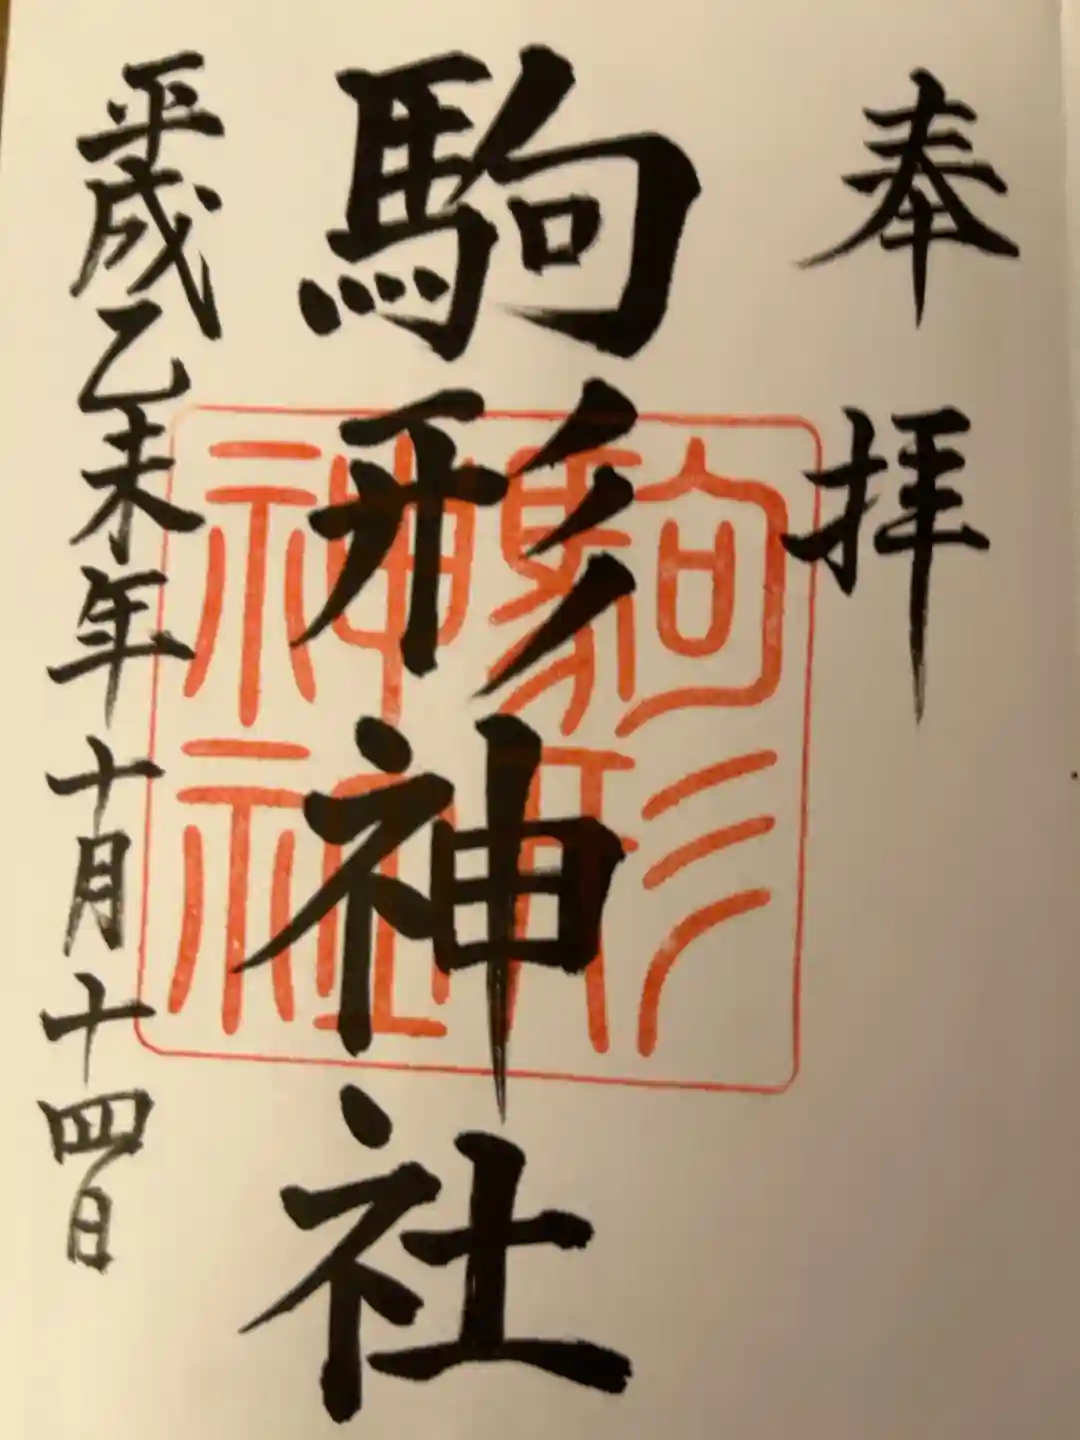 奉拝
駒形神社
駒形
神社
平成乙未年十月十四日